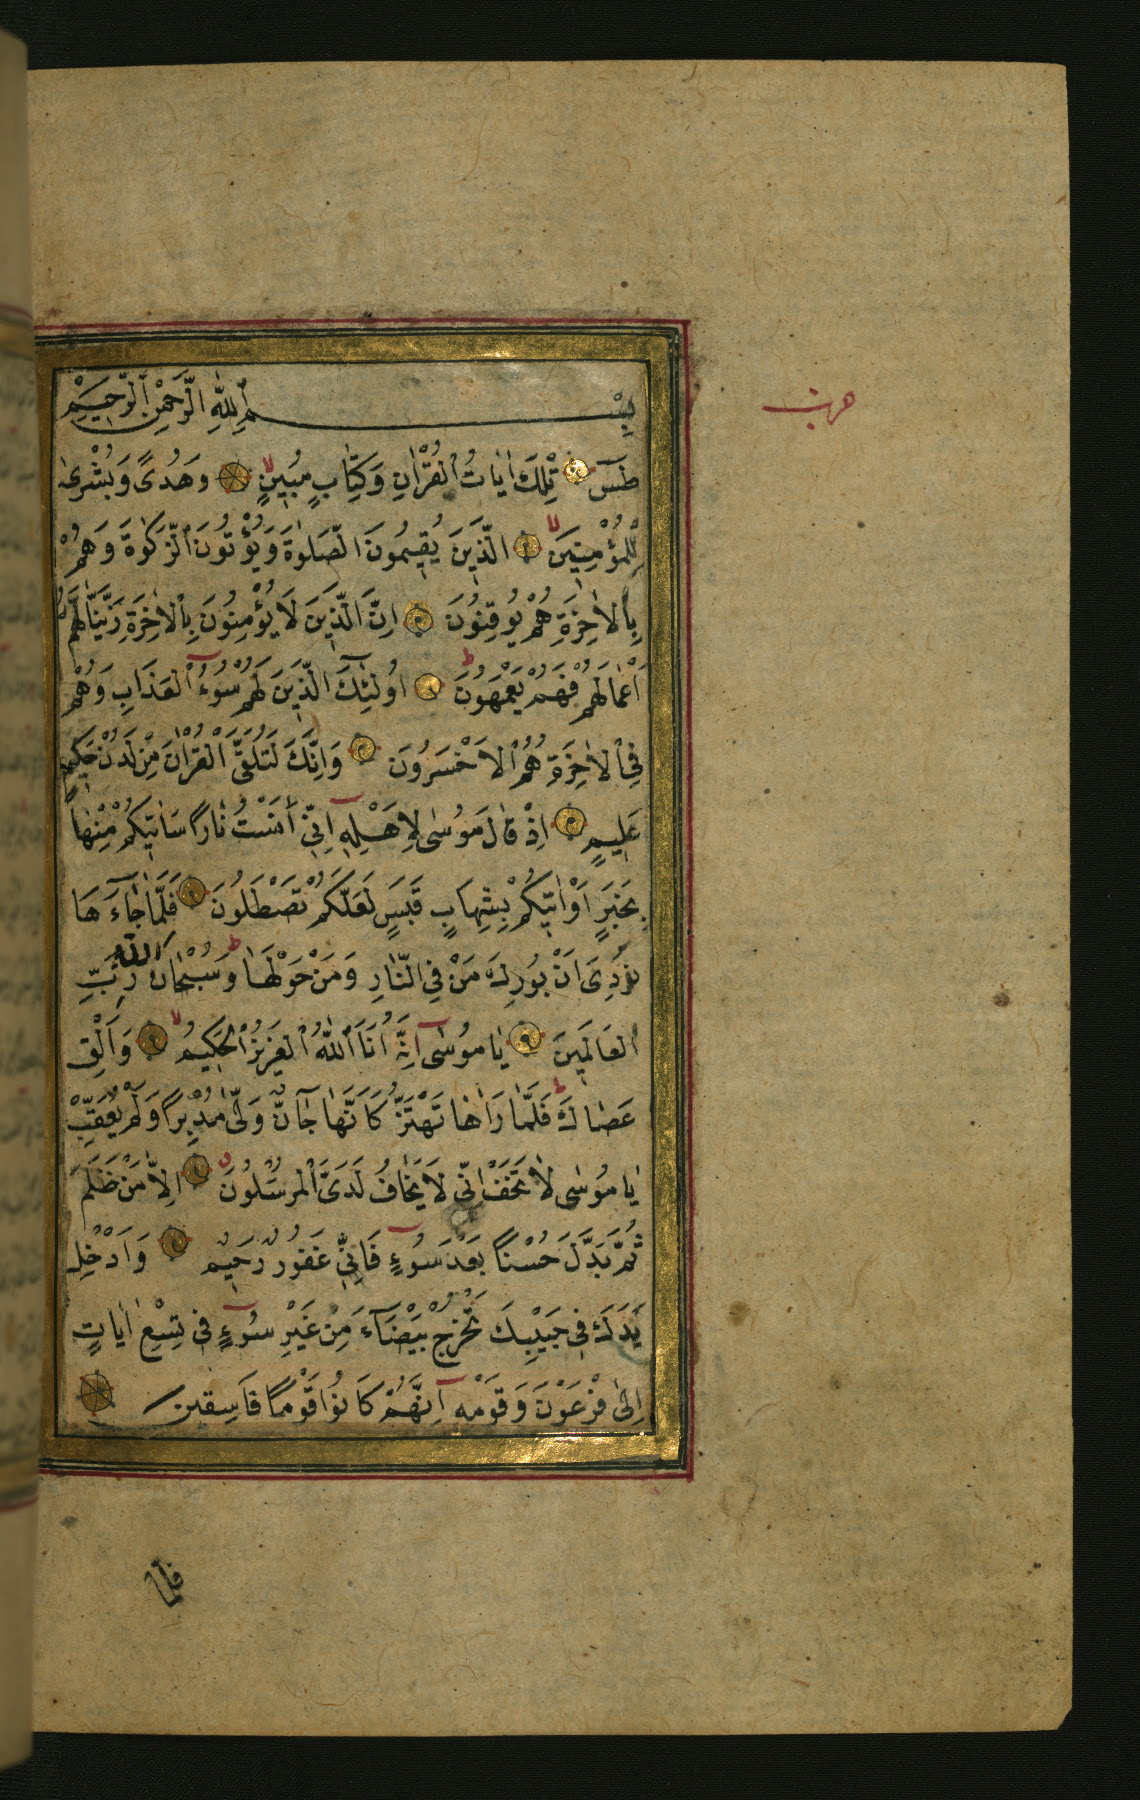 بِسْمِ اللّٰهِ الرَّحْمٰنِ الرَّحِيمِ
طٰسٓ تِلْكَ اٰيَاتُ الْقُرْاٰنِ وَكِتَابٍ مُبِينٍ وهَدُىً وَبُشْرٰى
لِلْمُؤْمِنِينَ الَّذِينَ يُقِيمُونَ الصَّلٰوةَ وَيُؤْتُونَ الزَّكٰوةَ وَهُمْ
بِالْاٰخِرَةِ هُمْ يُوقِنُونَ اِنَّ الَّذِينَ لَا يُؤْمِنُونَ بِالْاٰخِرَةِ زَيَّنَّا لَهُمْ
اَعْمَالَهُمْ فَهُمْ يَعْمَهُونَ اُولٰئِكَ الَّذِينَ لَهُمْ سُوٓءُ الْعَذَابِ وَهُمْ
فِي الْاٰخِرَةِ هُمُ الْاَخْسَرُونَ وَاِنَّكَ لَتُلَقَّى الْقُرْاٰنَ مِنْ لَدُنْ حَكِيمٍ
عَلِيمٍ اِذْ قَالَ مُوسٰى لِاَهْلِهٖ اِنِّي اٰنَسْتُ نَارًا سَاٰتِيكُمْ مِنْهَا
بِخَبَرٍ اَوْ اٰتِيكُمْ بِشِهَابٍ قَبَسٍ لَعَلَّكُمْ تَصْطَلُونَ فَلَمَّا جَاءَهَا
نُودِيَ اَنْ بُورِكَ مَنْ فِي النَّارِ وَمَنْ حَوْلَهَا وَسُبْحَانَ اللّٰه رَبِّ
الْعَالَمِينَ يَا مُوسٰى اِنَّهُ اَنَا اللّٰهُ الْعَزِيزُ الْحَكِيمُ وَاَلْقِ
عَصَاكَ فَلَمَّا رَاٰهَا تَهْتَزُّ كَاَنَّهَا جَانٌّ وَلّٰى مُدْبِرًا وَلَمْ يُعَقِّبْ
يَا مُوسٰى لَا تَخَفْ اِنِّي لَا يَخَافُ لَدَيَّ الْمُرْسَلُونَ اِلَّا مَنْ ظَلَمَ
ثُمَّ بَدَّلَ حُسْنًا بَعْدَ سُوٓءٍ فَاِنِّي غَفُورٌ رَحِيمٌ وَاَدْخِلْ
يَدَكَ فِي جَيْبِكَ تَخْرُجْ بَيْضَاءَ مِنْ غَيْرِ سُوٓءٍ فِي تِسْعِ اٰيَاتٍ
اِلٰى فِرْعَوْنَ وَقَوْمِهٖ اِنَّهُمْ كَانُوا قَوْمًا فَاسِقِين
فلما